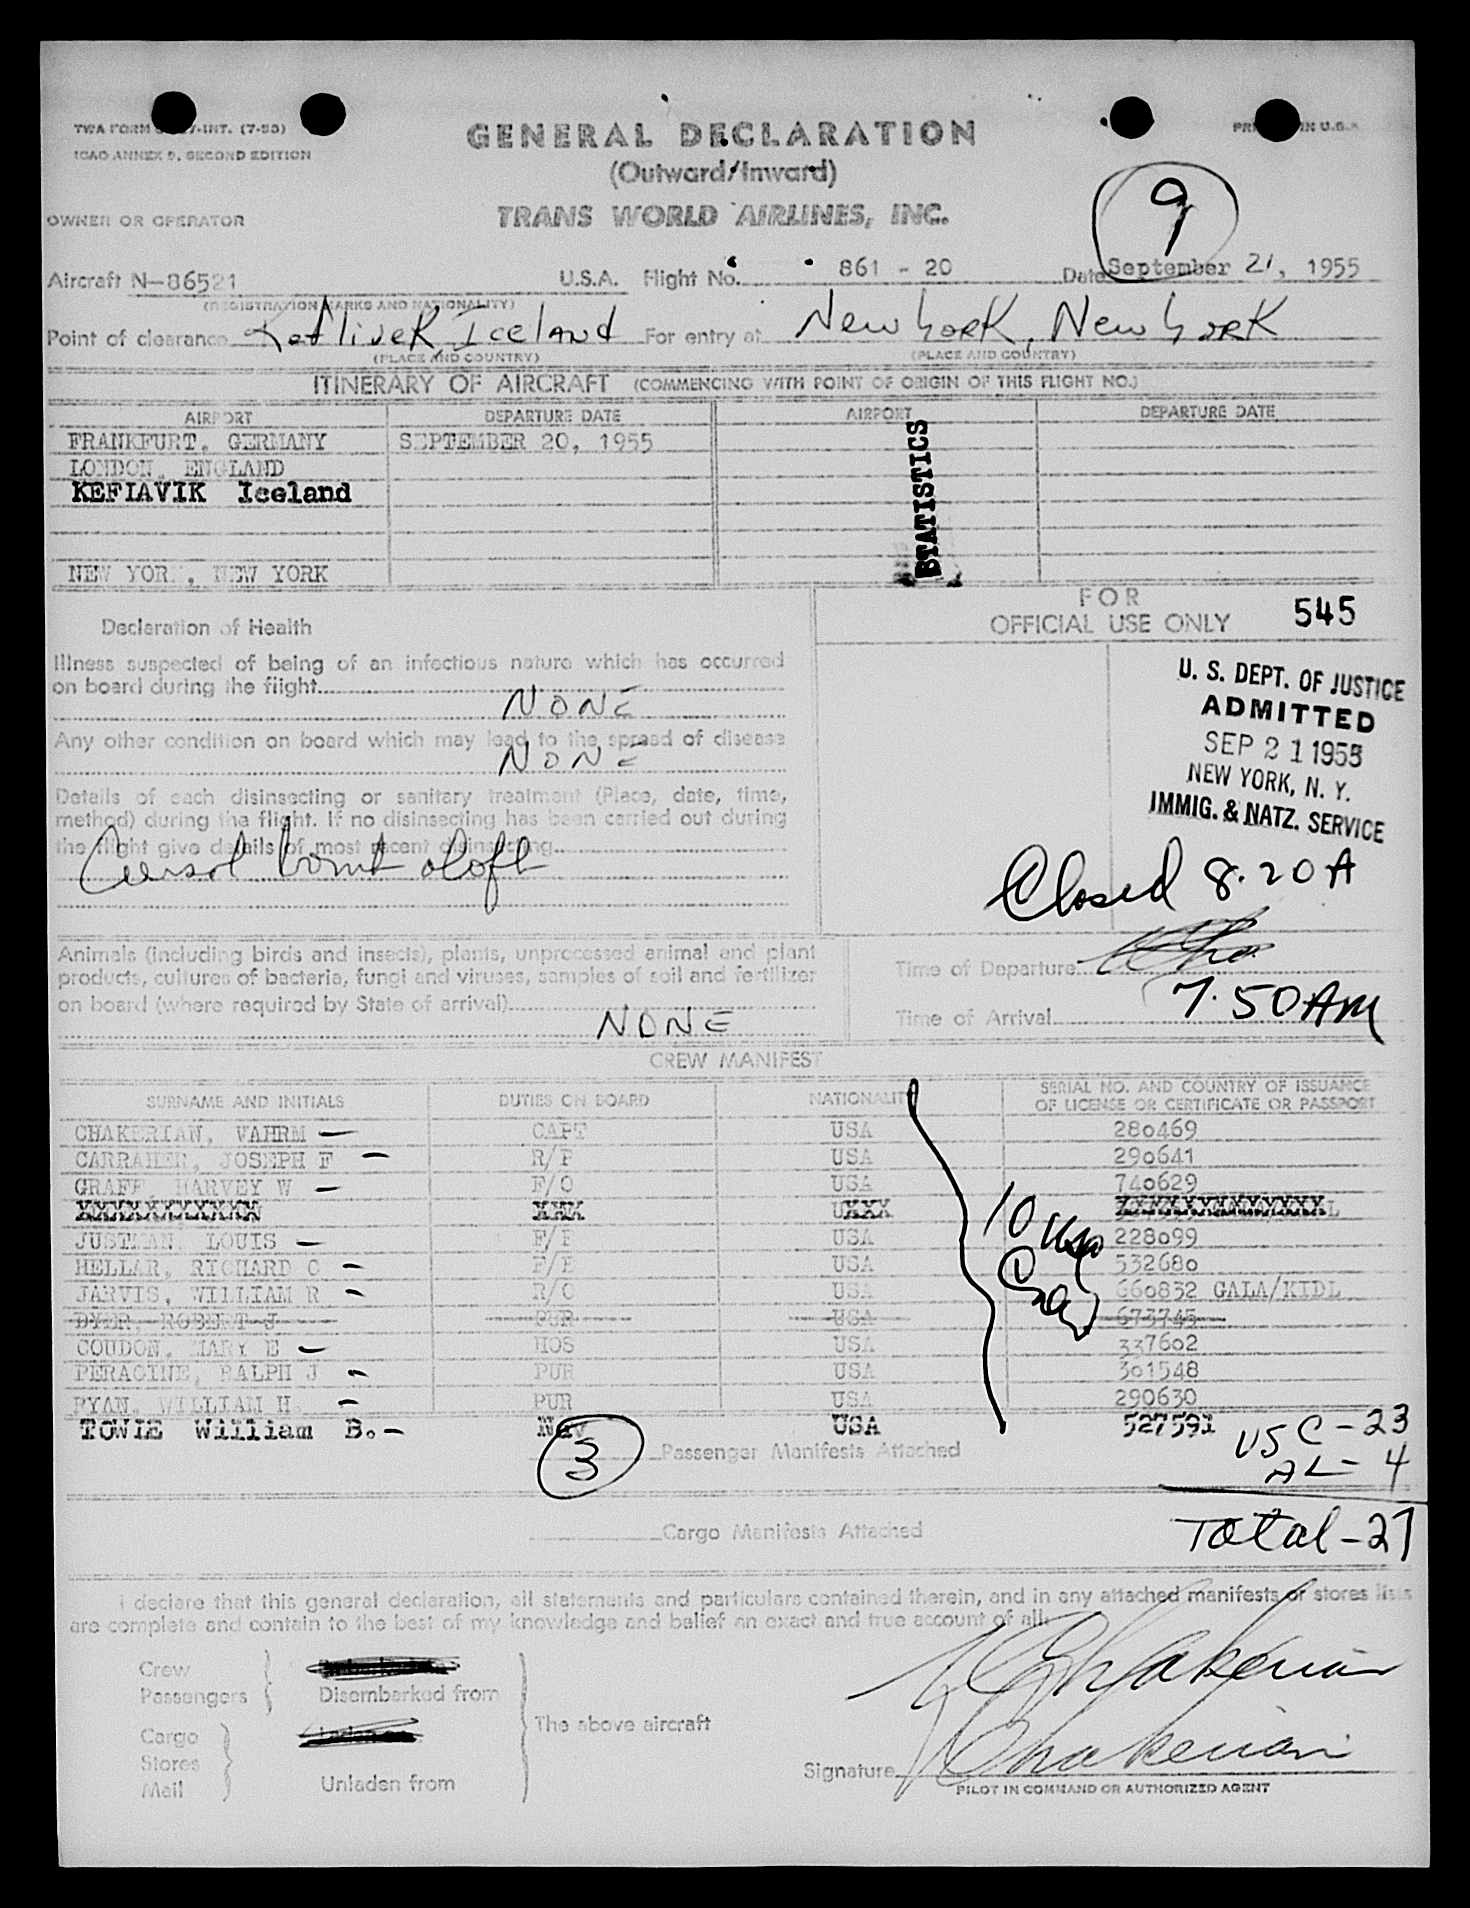 GENERAL DECLARATION
(Outward/Inward)
ICAO ANNEX 9, SECOND EDITION
OWNER OR OPERATOR TRANS WORLD AIRLINES, INC.
9
Aircraft N-86521 U.S.A. Flight No. 861 - 20 Date September 21, 1955
(REGISTRATION MARKS AND NATIONALITY)
Point of clearance Keflivek, Iceland For entry at New York, New York
(PLACE AND COUNTRY) (PLACE AND COUNTRY)
ITINERARY OF AIRCRAFT (COMMENCING WITH POINT OF ORIGIN OF THIS FLIGHT NO.)
AIRPORT DEPARTURE DATE AIRPORT DEPARTURE DATE
FRANKFURT, GERMANY SEPTEMBER 20, 1955
LONDON, ENGLAND
KEFIAVIK Iceland
STATISTICS
NEW YOR , NEW YORK
FOR
OFFICIAL USE ONLY 545
Declaration of Health
Illness suspected of being of an infectious nature which has occurred
on board during the flight
NONE
Any other condition on board which may lead to the spread of disease
NONE
Details of each disinsecting or sanitary treatment (Place, date, time,
method) during the flight. If no disinsecting has been carried out during
the flight give details of most recent disinsecting
aloft
U. S. DEPT. OF JUSTICE
ADMITTED
SEP 21 1955
NEW YORK, N. Y.
IMMIG. & NATZ. SERVICE
Closed 8.20 A
Animals (including birds and insects), plants, unprocessed animal and plant
products, cultures of bacteria, fungi and viruses, samples of soil and fertilizer
on board (where required by State of arrival)
NONE
Time of Departure
Time of Arrival 7.50 AM
CREW MANIFEST
SURNAME AND INITIALS DUTIES ON BOARD NATIONALITY SERIAL NO. AND COUNTRY OF ISSUANCE
OF LICENSE OR CERTIFICATE OR PASSPORT
CHAKERIAN, VAHRM - CAPT USA 280469
CARRAHER, JOSEPH F - R/F USA 290641
GRAFF, HARVEY W - F/O USA 740629
JUSTMAN, LOUIS - F/E USA 228099
HELLAR, RICHARD C - F/E USA 532680
JARVIS, WILLIAM R - R/O USA 660832 GALA/KIDL
DYER, ROBERT J PUR USA 673745
COUDON, MARY E - HOS USA 337602
PERAGINE, RALPH J - PUR USA 301548
RYAN, WILLIAM H. - PUR USA 290630
TOWIE William B. - Nav USA 527591
10
3 Passenger Manifests Attached
USC - 23
AL - 4
Cargo Manifests Attached
Total - 27
I declare that this general declaration, all statements and particulars contained therein, and in any attached manifests or stores lists
are complete and contain to the best of my knowledge and belief an exact and true account of all:
Crew
Passengers Disembarked from
The above aircraft
Cargo
Stores
Mail Unladen from
V Chakerian
Signature V Chakerian
PILOT IN COMMAND OR AUTHORIZED AGENT